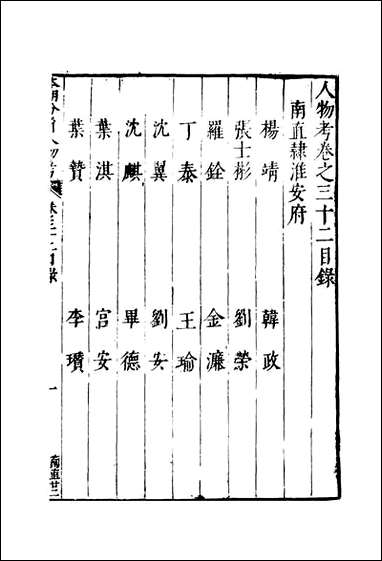 人物考卷之三十二目錄
南直隸淮安府
楊靖 韓政
張士彬 劉榮
羅銓 金濂
丁泰 王瑜
沈翼 劉安
沈麒 畢德
葉淇 宮安
葉贊 李瓚
本朝分省人物考 卷三十二目錄 一 南直廿二